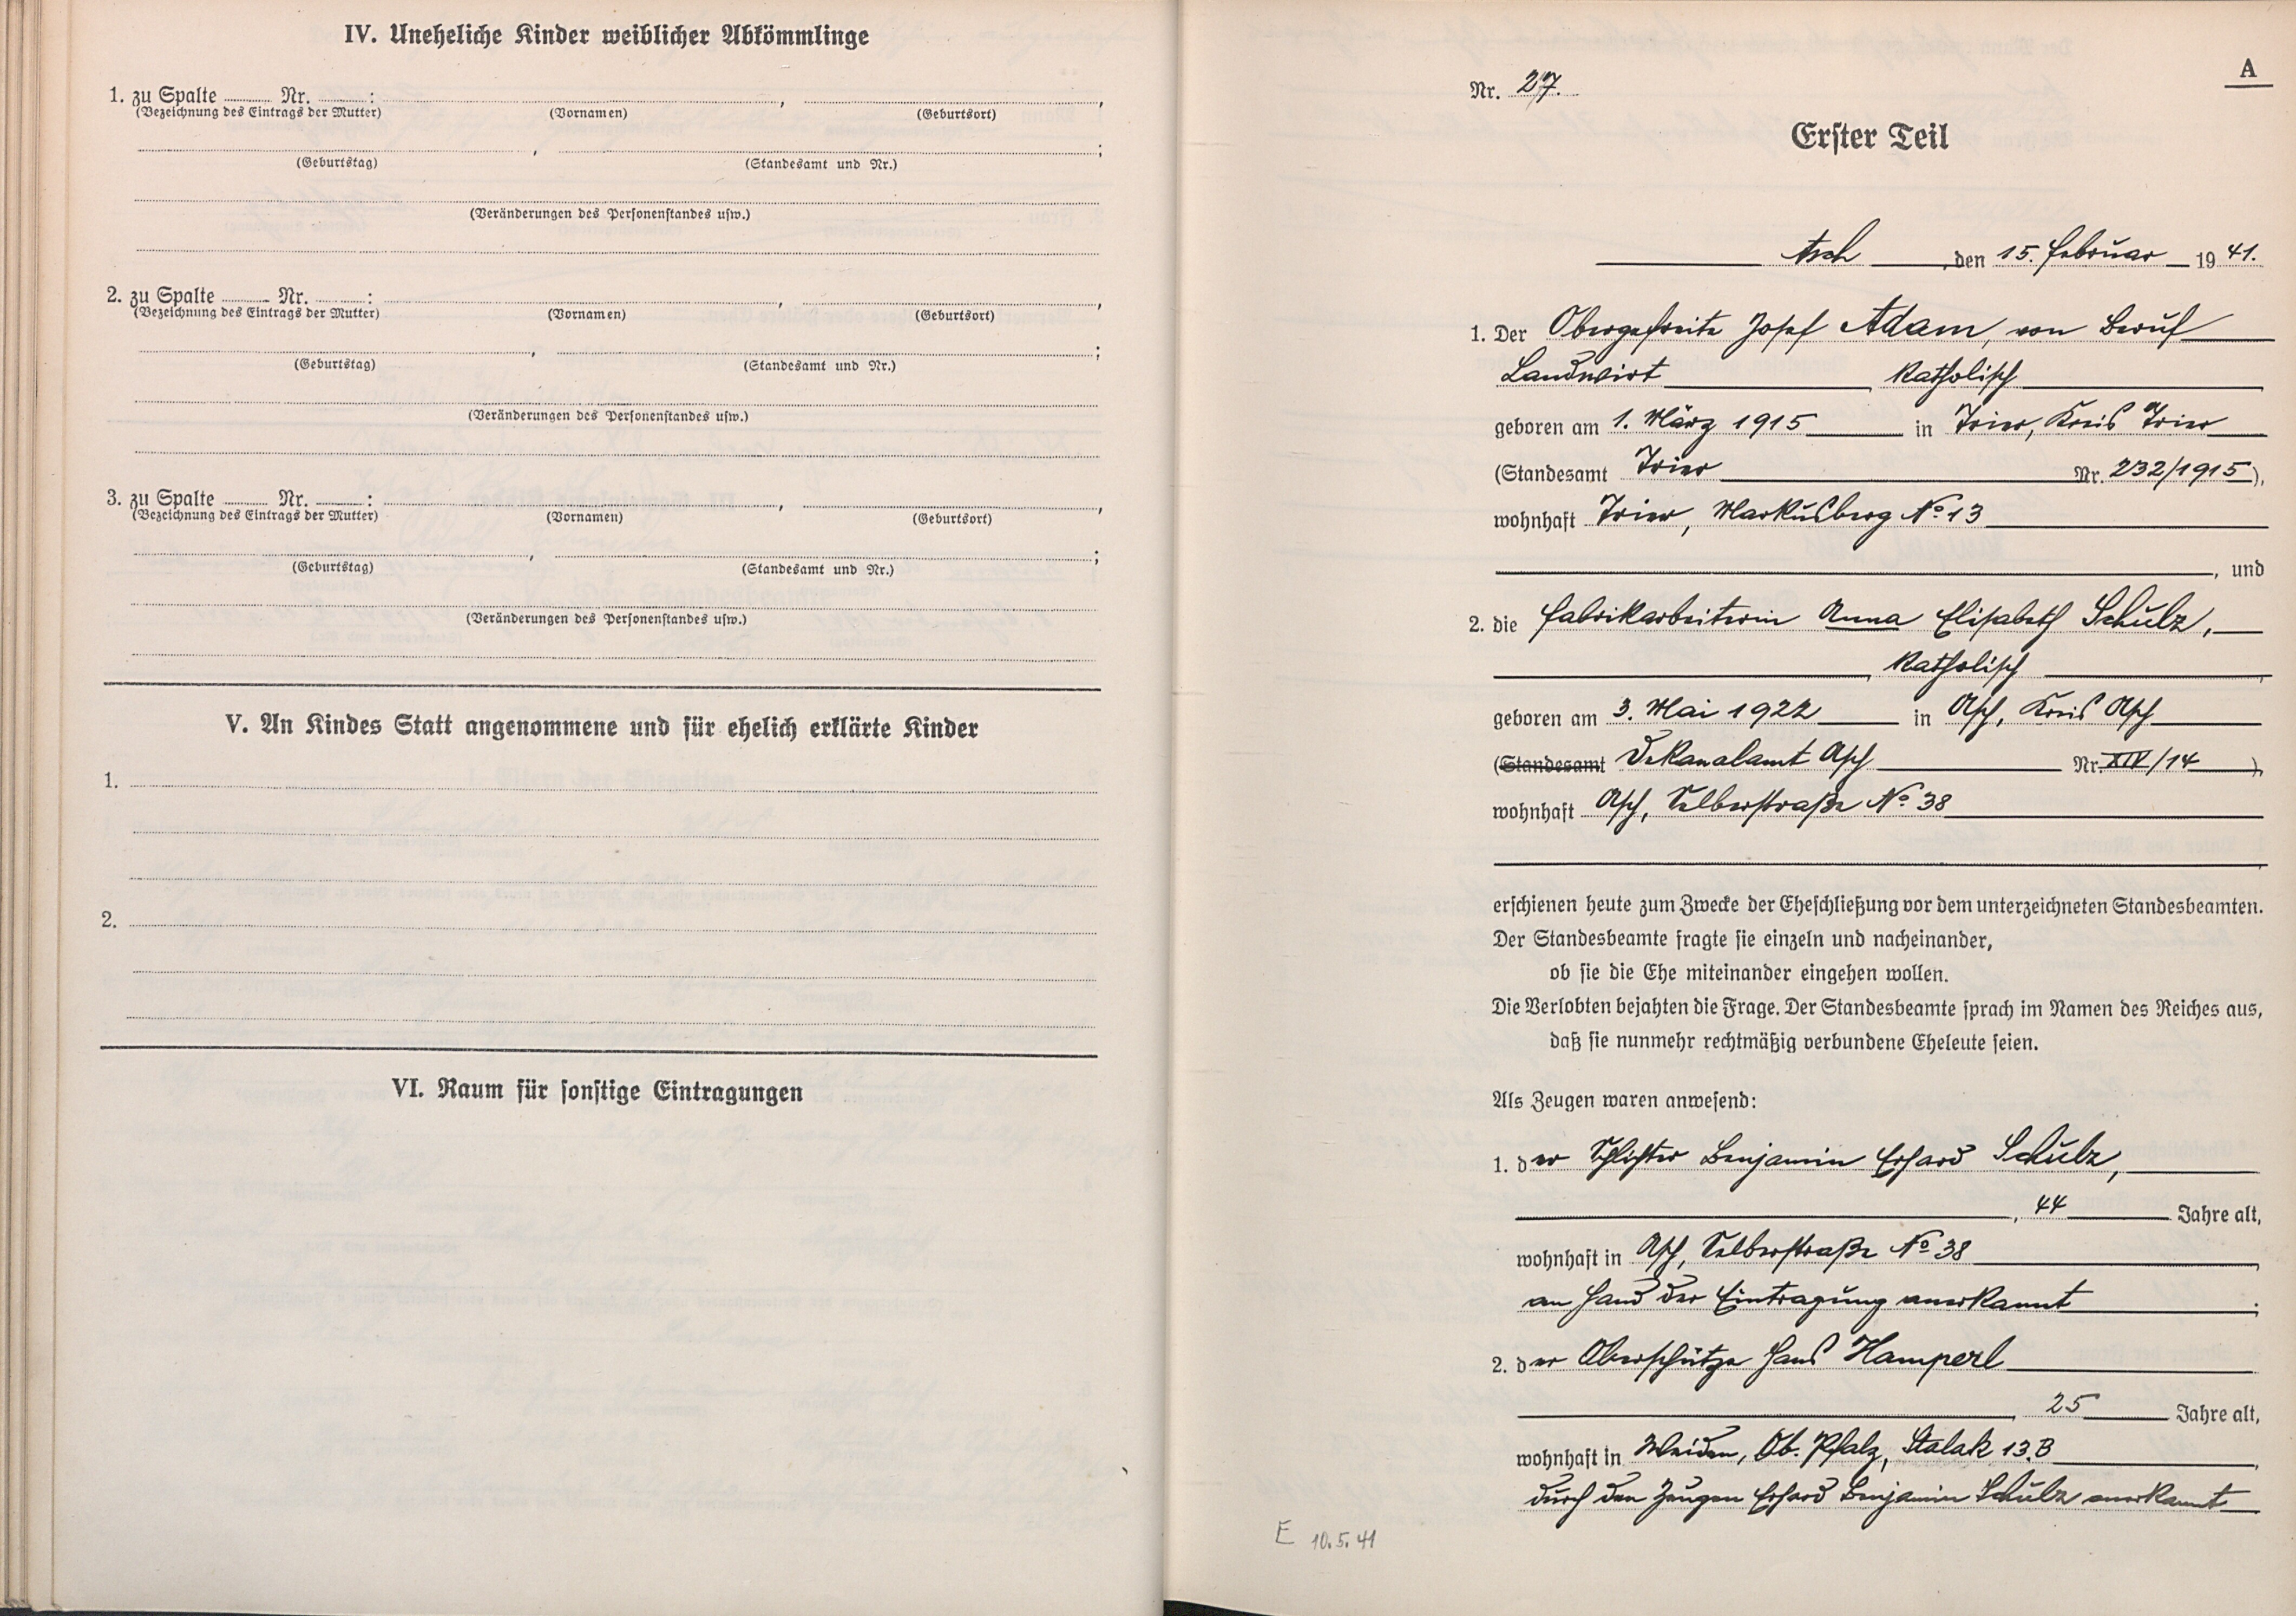 IV. Uneheliche Kinder weiblicher Abkömmlinge
1. zu Spalte ........ Nr. ........: ........, ........,
(Bezeichnung des Eintrags der Mutter) (Vornamen) (Geburtsort)
........, ........;
(Geburtstag) (Standesamt und Nr.)
(Veränderungen des Personenstandes usw.)
2. zu Spalte ........ Nr. ........: ........, ........,
(Bezeichnung des Eintrags der Mutter) (Vornamen) (Geburtsort)
........, ........;
(Geburtstag) (Standesamt und Nr.)
(Veränderungen des Personenstandes usw.)
3. zu Spalte ........ Nr. ........: ........, ........,
(Bezeichnung des Eintrags der Mutter) (Vornamen) (Geburtsort)
........, ........;
(Geburtstag) (Standesamt und Nr.)
(Veränderungen des Personenstandes usw.)
V. An Kindes Statt angenommene und für ehelich erklärte Kinder
1.
2.
VI. Raum für sonstige Eintragungen
A
Nr. 27.
Erster Teil
Asch, den 15. Februar 1941.
1. Der Obergefreite Josef Adam, von Beruf
Landwirt, katholisch
geboren am 1. März 1915 in Trier, Kreis Trier
(Standesamt Trier Nr. 232/1915),
wohnhaft Trier, Markusberg No 13
, und
2. die Fabrikarbeiterin Anna Elisabeth Schulz,
, katholisch,
geboren am 3. Mai 1922 in Asch, Kreis Asch
(Standesamt Dekanalamt Asch Nr. XIV/14),
wohnhaft Asch, Selberstraße No 38
erschienen heute zum Zwecke der Eheschließung vor dem unterzeichneten Standesbeamten.
Der Standesbeamte fragte sie einzeln und nacheinander,
ob sie die Ehe miteinander eingehen wollen.
Die Verlobten bejahten die Frage. Der Standesbeamte sprach im Namen des Reiches aus,
daß sie nunmehr rechtmäßig verbundene Eheleute seien.
Als Zeugen waren anwesend:
1. der Schlichter Benjamin Erhard Schulz,
, 44 Jahre alt,
wohnhaft in Asch, Selberstraße No 38,
an Hand der Eintragung anerkannt;
2. der Oberschütze Hans Hamperl
, 25 Jahre alt,
wohnhaft in Weiden, Ob. Pfalz, Stalak 13.B,
durch den Zeugen Erhard Benjamin Schulz anerkannt
E 10.5.41